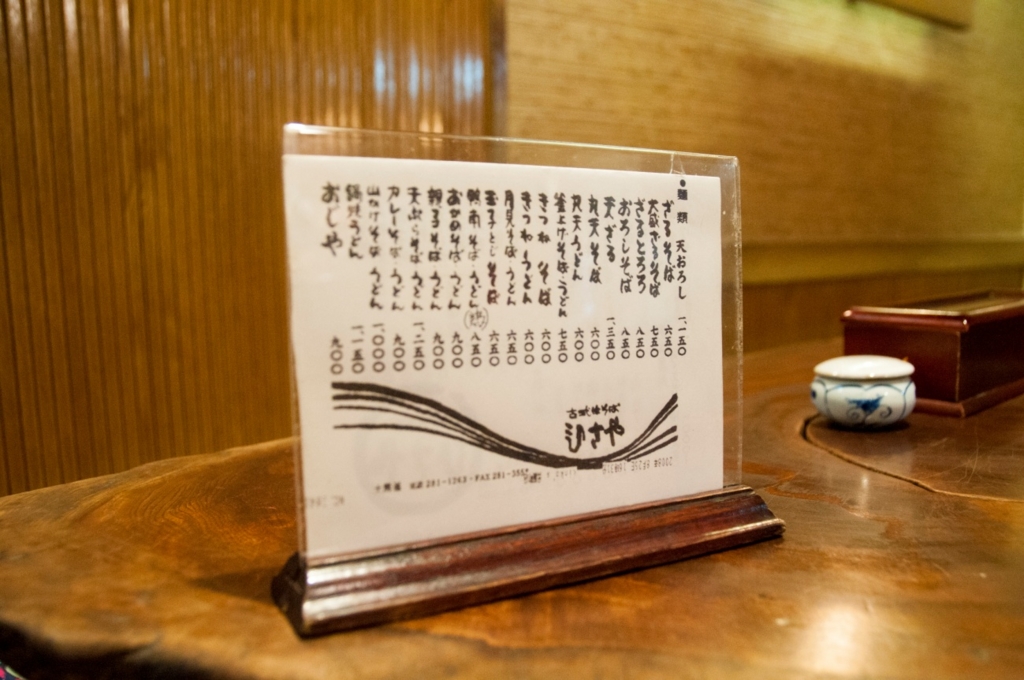 ●麺類 天おろし 一、一五〇
ざるそば 六五〇
大盛ざるそば 七五〇
ざるとろろ 八五〇
おろしそば 八五〇
天ざる 一、三五〇
丸天そば 六〇〇
丸天うどん 六〇〇
釜上げそば・うどん 七五〇
きつねそば 六〇〇
きつねうどん 六〇〇
月見そば うどん 六五〇
玉子とじそば 六五〇
鴨南そば うどん 八五〇
おかめそば うどん 九〇〇
親子そば うどん 九〇〇
天ぷらそば うどん 一、二五〇
カレーそば うどん 九〇〇
山かけそば うどん 一、〇〇〇
鍋焼うどん 一、一五〇
おじや 九〇〇
ひさや
281-1263・FAX 281-355